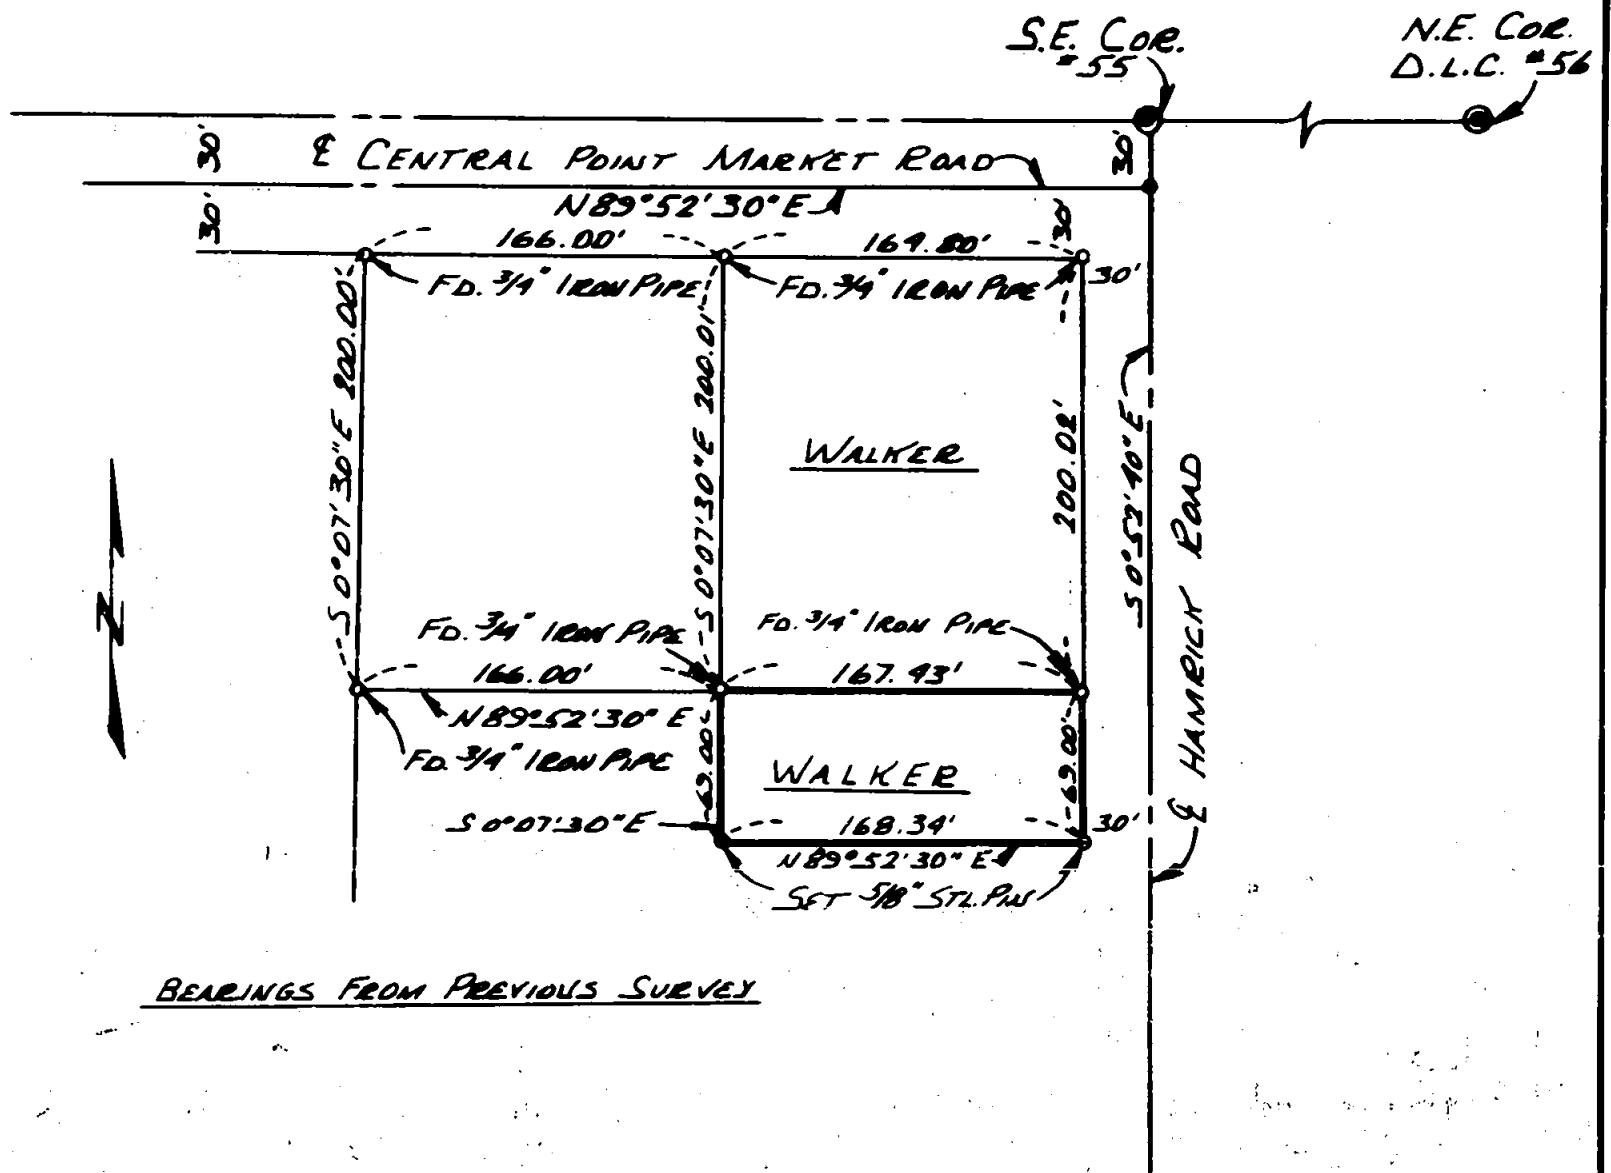 S.E. COR.
#55
N.E. COR.
D.L.C. #56
30'
℄ CENTRAL POINT MARKET ROAD
30'
30'
N 89°52'30" E
30'
166.00'
164.80'
FD. 3/4" IRON PIPE
FD. 3/4" IRON PIPE
30'
S 0°07'30" E 200.00'
S 0°07'30" E 200.01'
200.02'
S 0°52'40" E
WALKER
℄ HAMRICK ROAD
FD. 3/4" IRON PIPE
FD. 3/4" IRON PIPE
166.00'
167.93'
N 89°52'30" E
FD. 3/4" IRON PIPE
69.00'
WALKER
69.00'
S 0°07'30" E
168.34'
30'
N 89°52'30" E
SET 5/8" STL. PINS
N
BEARINGS FROM PREVIOUS SURVEY